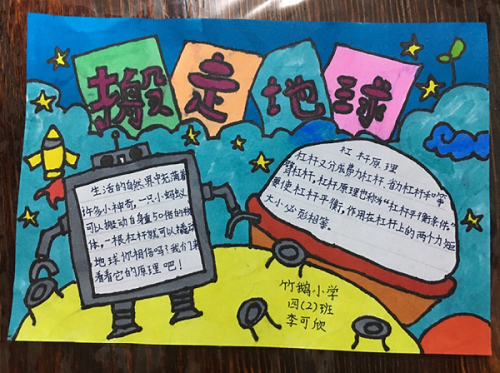 搬走地球
生活的自然界中充满着
许多小神奇，一只小蚂蚁
可以搬动自身重50倍的物
体，一根杠杆就可以撬动
地球你相信吗？我们来
看看它的原理吧！
杠杆原理
杠杆又分成费力杠杆、省力杠杆和等
臂杠杆，杠杆原理也称为“杠杆平衡条件”
要使杠杆平衡，作用在杠杆上的两个力矩
大小必须相等。
竹鹅小学
四(2)班
李可欣